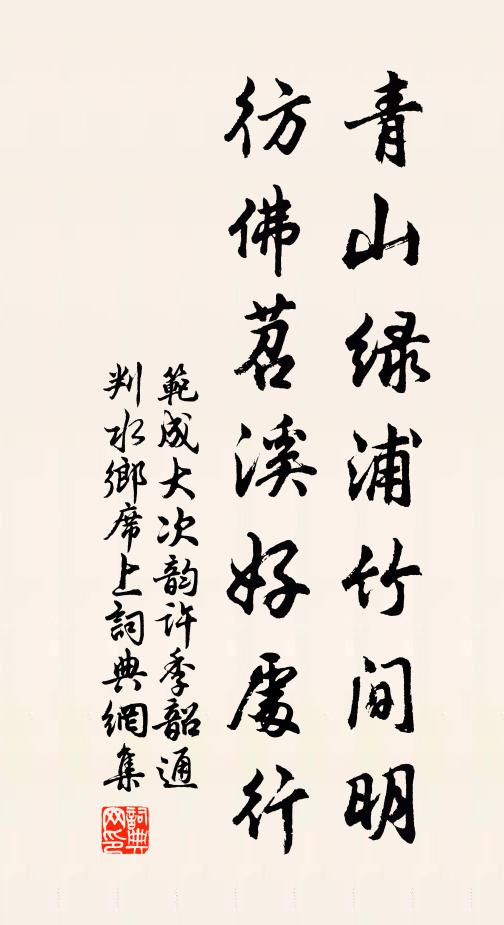 青山绿浦竹间明
彷佛苕溪好處行
範成大次韵許季韶通
判水鄉席上詞典網集
詞典
网印